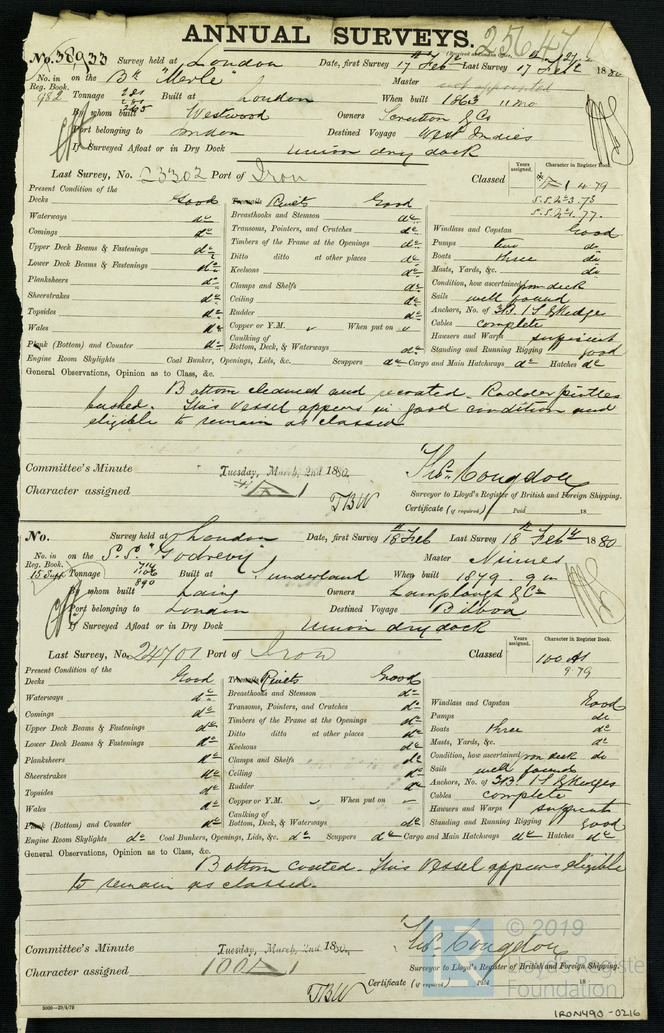 ANNUAL SURVEYS. 25647
No. 38933 Survey held at London Date, first Survey 17th Feb Last Survey 17th Feb 1880
No. in on the Bk "Merle" Master not appointed
Reg. Book.
982 Tonnage 281 Built at London When built 1863 11 mo
265
By whom built Westwood Owners Scrutton & Co
Port belonging to London Destined Voyage West Indies
If Surveyed Afloat or in Dry Dock Union dry dock
Last Survey, No. 23302 Port of Iron Classed
Years assigned. Character in Register Book.
A 1 4.79
S.S. 2nd 3.73
S.S. 2-1.77.
Present Condition of the
Decks Good Rivets Good
Waterways do Breasthooks and Stemson do Windlass and Capstan Good
Comings do Transoms, Pointers, and Crutches do Pumps two do
Upper Deck Beams & Fastenings do Timbers of the Frame at the Openings do Boats three do
Lower Deck Beams & Fastenings do Ditto ditto at other places do Masts, Yards, &c. do
Keelsons do
Planksheers do Clamps and Shelfs do Condition, how ascertained from deck
Sheerstrakes do Ceiling do Sails well found
Topsides do Rudder do Anchors, No. of 3B. 1 S. 2 Kedge
Wales do Copper or Y.M. When put on Cables complete
Plank (Bottom) and Counter do Caulking of Bottom, Deck, & Waterways do Hawsers and Warps sufficient
Standing and Running Rigging good
Engine Room Skylights Coal Bunker, Openings, Lids, &c. Scuppers do Cargo and Main Hatchways do Hatches do
General Observations, Opinion as to Class, &c.
Bottom cleaned and recoated. Rudder pintles
bushed. This vessel appears in good condition and
eligible to remain as classed
Committee's Minute Tuesday, March, 2nd 1880. Thos. Congdon
Character assigned A 1 Surveyor to Lloyd's Register of British and Foreign Shipping.
TBW Certificate (if required) Paid 18
No. Survey held at London Date, first Survey 18th Feb Last Survey 18 Feby 1880
No. in on the S.S. "Godrevy" Master Ninnes
Reg. Book.
15 Supp Tonnage 1106 Built at Sunderland When built 1879. 9 m
890
By whom built Laing Owners Lamplough & Co
Port belonging to London Destined Voyage Bilboa
If Surveyed Afloat or in Dry Dock Union dry dock
Last Survey, No. 24701 Port of Iron Classed
Years assigned. Character in Register Book.
100 A1
9.79
Present Condition of the
Decks Good Rivets Good
Waterways do Breasthooks and Stemson do Windlass and Capstan Good
Comings do Transoms, Pointers, and Crutches do Pumps do
Upper Deck Beams & Fastenings do Timbers of the Frame at the Openings do Boats three do
Lower Deck Beams & Fastenings do Ditto ditto at other places do Masts, Yards, &c. do
Keelsons do
Planksheers do Clamps and Shelfs do Condition, how ascertained from deck do
Sheerstrakes do Ceiling do Sails well found
Topsides do Rudder do Anchors, No. of 3B. 1 S. 2 Kedges
Wales do Copper or Y.M. When put on Cables complete
Plank (Bottom) and Counter do Caulking of Bottom, Deck, & Waterways do Hawsers and Warps sufficient
Standing and Running Rigging good
Engine Room Skylights do Coal Bunkers, Openings, Lids, &c. do Scuppers do Cargo and Main Hatchways do Hatches do
General Observations, Opinion as to Class, &c.
Bottom coated. This Vessel appears eligible
to remain as classed.
Committee's Minute Tuesday, March, 2nd 1880. Thos. Congdon
Character assigned 100 A 1 Surveyor to Lloyd's Register of British and Foreign Shipping.
TBW Certificate (if required) Paid 18
© 2019
Lloyd's Register
Foundation
IRON490-0216